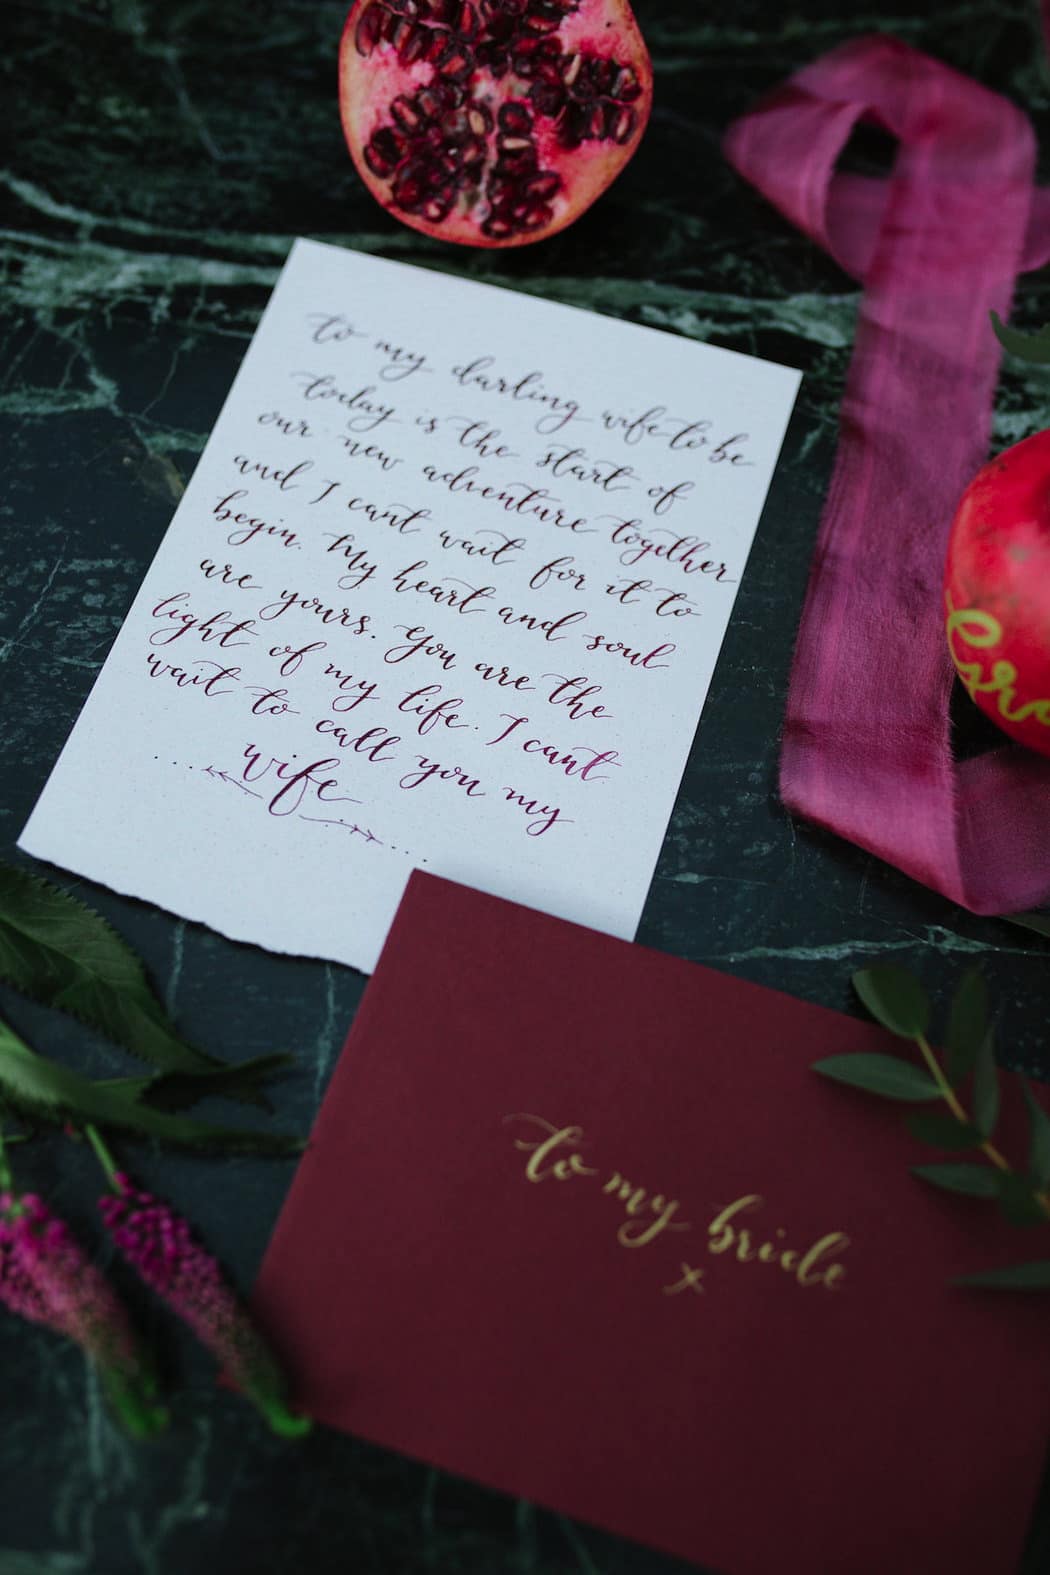 to my darling wife to be
today is the start of
our new adventure together
and I cant wait for it to
begin. My heart and soul
are yours. You are the
light of my life. I cant
wait to call you my
wife
to my bride
x
Gro